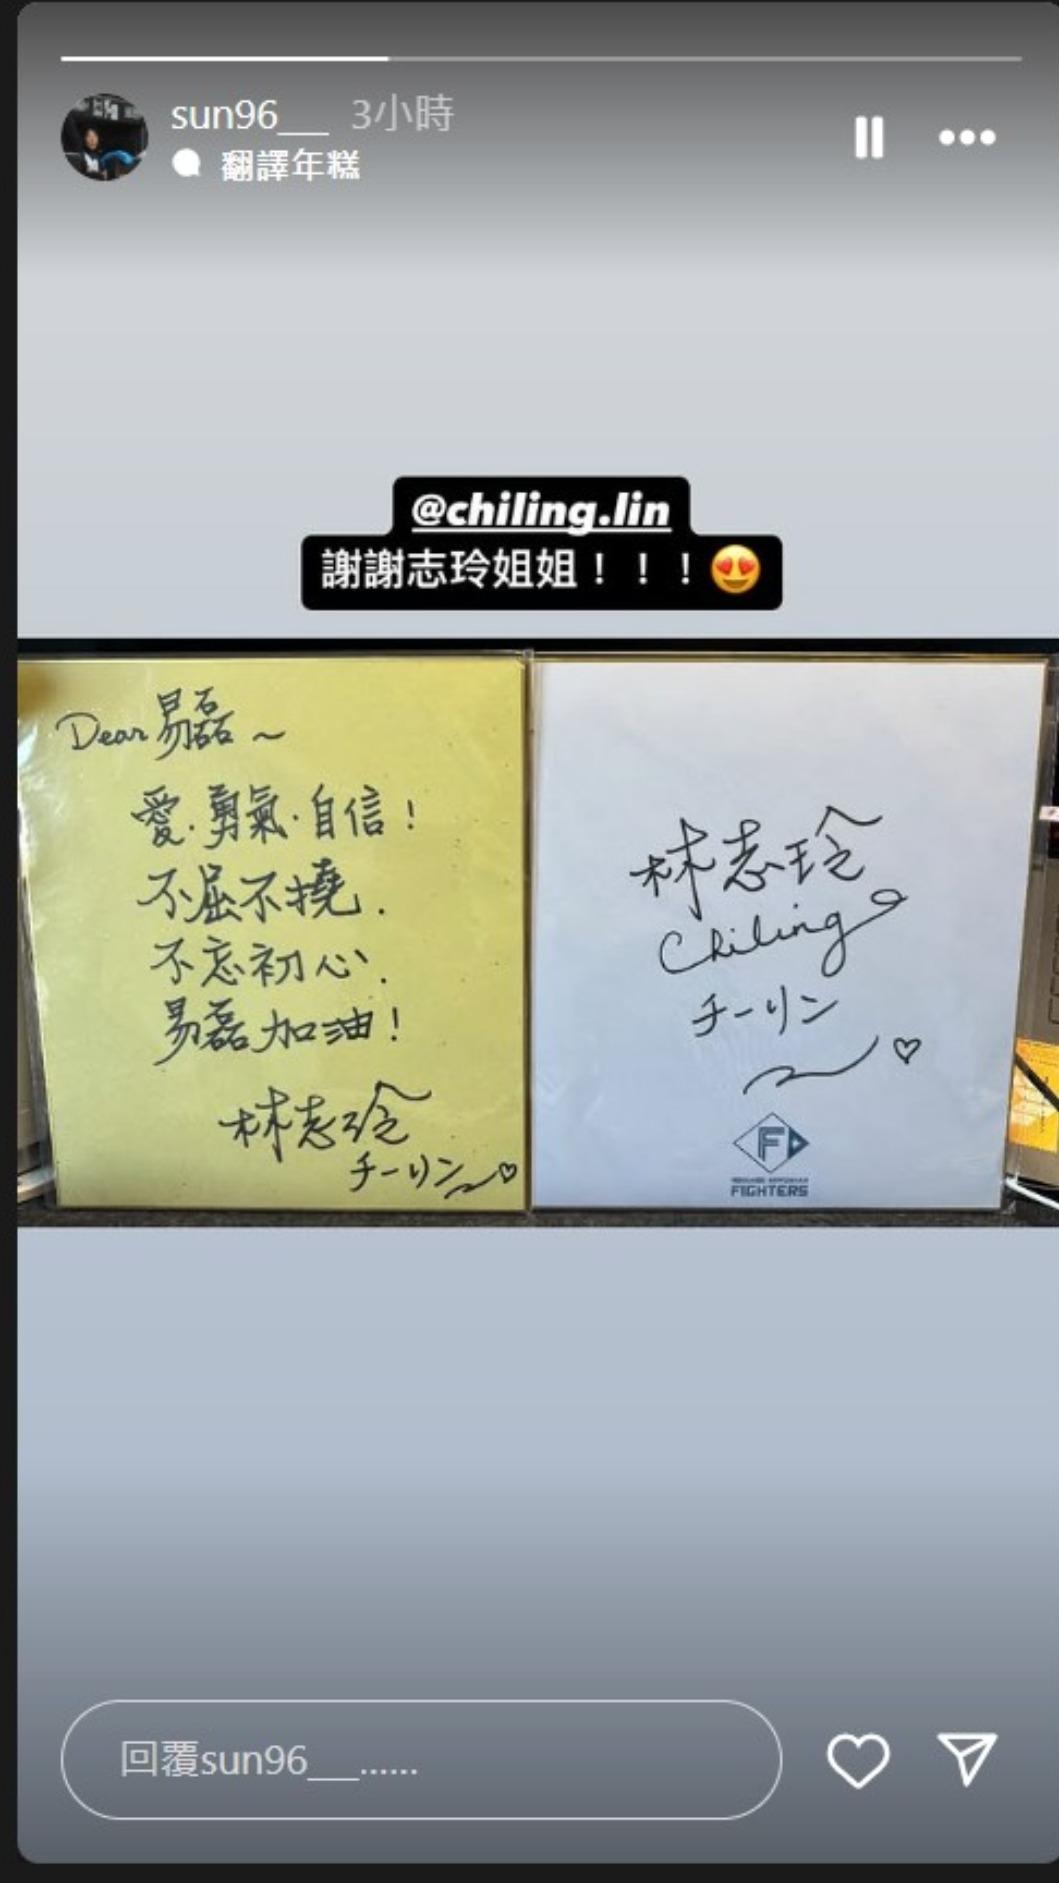 sun96___ 3小時
翻譯年糕
@chiling.lin
謝謝志玲姐姐！！！😍
Dear 易磊~
愛·勇氣·自信!
不屈不撓.
不忘初心.
易磊加油!
林志玲
チーリン♡
林志玲
Chiling
チーリン
♡
FIGHTERS
回覆sun96___......